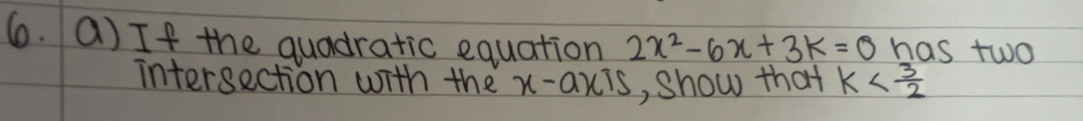 6. a) If the quadratic equation 2x² - 6x + 3k = 0 has two
intersection with the x-axis, show that k < 3/2